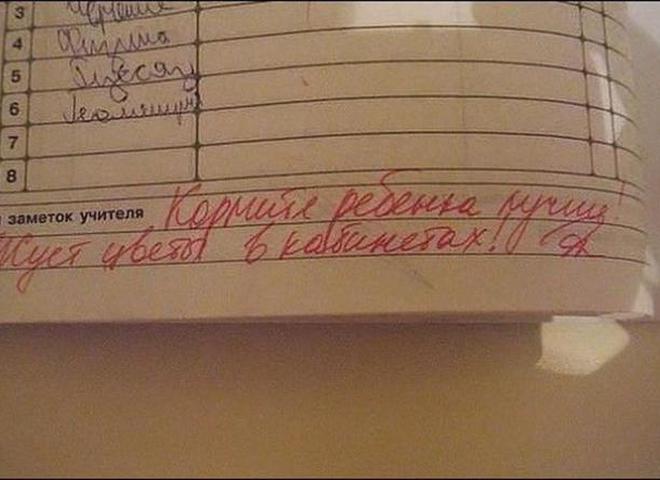 3 Черчение
4 Физика
5
6 Геометрия
7
8
заметок учителя Кормите ребенка лучше!
Жует цветы в кабинетах!